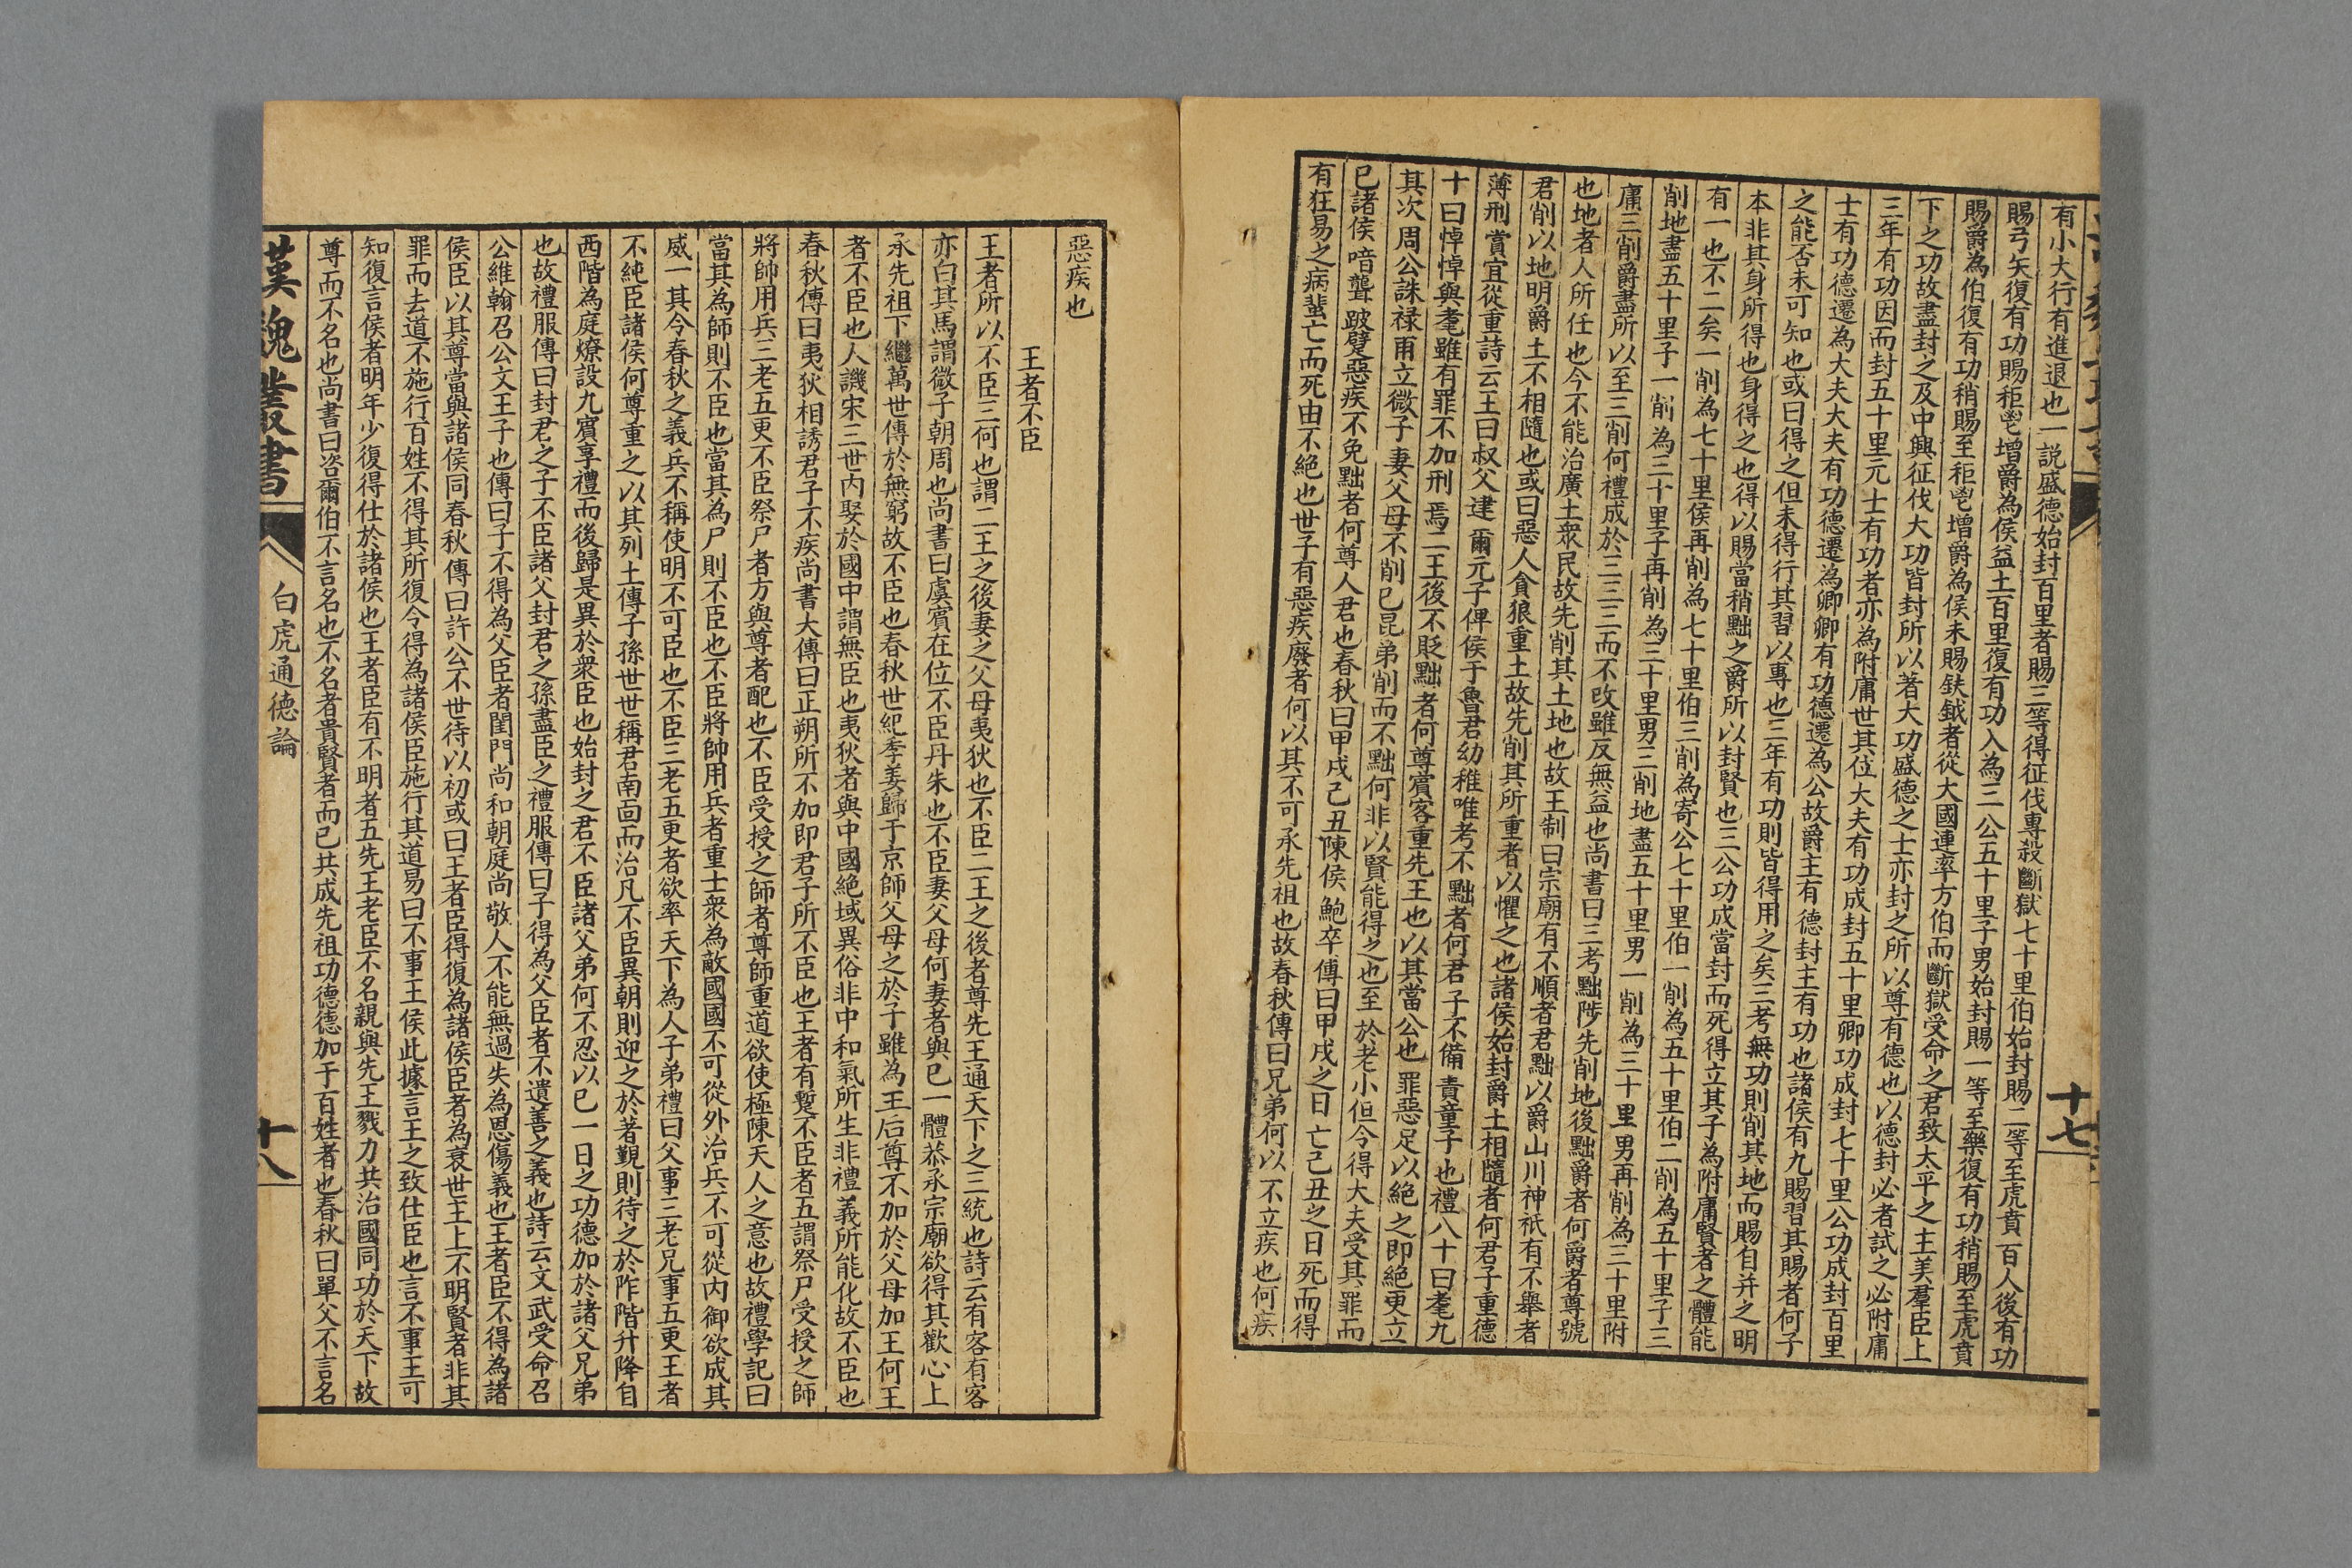 有小大行有進退也一説盛德始封百里者賜三等得征伐專殺斷獄七十里伯始封賜二等至虎賁百人後有功
賜弓矢復有功賜秬鬯增爵為侯益土百里復有功入為三公五十里子男始封賜一等至樂復有功稍賜至虎賁
賜爵為伯復有功稍賜至秬鬯增爵為侯未賜鈇鉞者從大國連率方伯而斷獄受命之君致太平之主美羣臣上
下之功故盡封之及中興征伐大功皆封所以著大功盛德之士亦封之所以尊有德也以德封必者試之必附庸
三年有功因而封五十里元士有功者亦為附庸世其位大夫有功成封五十里卿功成封七十里公功成封百里
士有功德遷為大夫大夫有功德遷為卿卿有功德遷為公故爵主有德封主有功也諸侯有九賜習其賜者何子
之能否未可知也或曰得之但未得行其習以專也三年有功則皆得用之矣三考無功則削其地而賜自并之明
本非其身所得也身得之也得以賜當稍黜之爵所以封賢也三公功成當封而死得立其子為附庸賢者之體能
有一也不二矣一削為七十里侯再削為七十里伯三削為寄公七十里伯一削為五十里伯二削為五十里子三
削地盡五十里子一削為三十里子再削為三十里男三削地盡五十里男一削為三十里男再削為三十里附
庸三削爵盡所以至三削何禮成於三三三而不改雖反無益也尚書曰三考黜陟先削地後黜爵者何爵者尊號
也地者人所任也今不能治廣土衆民故先削其土地也故王制曰宗廟有不順者君黜以爵山川神祇有不舉者
君削以地明爵土不相隨也或曰惡人貪狼重土故先削其所重者以懼之也諸侯始封爵土相隨者何君子重德
薄刑賞宜從重詩云王曰叔父建爾元子俾侯于魯君幼稚唯考不黜者何君子不備責童子也禮八十曰耄九
十曰悼悼與耄雖有罪不加刑焉二王後不貶黜者何尊賓客重先王也以其當公也罪惡足以絶之即絶更立
其次周公誅禄甫立微子妻父母不削已昆弟削而不黜何非以賢能得之也至於老小但令得大夫受其罪而
已諸侯喑聾跛躄惡疾不免黜者何尊人君也春秋曰甲戌己丑陳侯鮑卒傳曰甲戌之日亡己丑之日死而得
有狂易之病蜚亡而死由不絶也世子有惡疾廢者何以其不可承先祖也故春秋傳曰兄弟何以不立疾也何疾
十七
惡疾也
王者不臣
王者所以不臣三何也謂二王之後妻之父母夷狄也不臣二王之後者尊先王通天下之三統也詩云有客有客
亦白其馬謂微子朝周也尚書曰虞賓在位不臣丹朱也不臣妻父母何妻者與已一體恭承宗廟欲得其歡心上
承先祖下繼萬世傳於無窮故不臣也春秋世紀季姜歸于京師父母之於子雖為王后尊不加於父母加王何王
者不臣也人譏宋三世内娶於國中謂無臣也夷狄者與中國絶域異俗非中和氣所生非禮義所能化故不臣也
春秋傳曰夷狄相誘君子不疾尚書大傳曰正朔所不加即君子所不臣也王者有蹔不臣者五謂祭尸受授之師
將帥用兵三老五更不臣祭尸者方與尊者配也不臣受授之師者尊師重道欲使極陳天人之意也故禮學記曰
當其為師則不臣也當其為尸則不臣也不臣將帥用兵者重士衆為敵國國不可從外治兵不可從内御欲成其
威一其今春秋之義兵不稱使明不可臣也不臣三老五更者欲率天下為人子弟禮曰父事三老兄事五更王者
不純臣諸侯何尊重之以其列土傳子孫世世稱君南面而治凡不臣異朝則迎之於著覲則待之於阼階升降自
西階為庭燎設九賓享禮而後歸是異於衆臣也始封之君不臣諸父弟何不忍以已一日之功德加於諸父兄弟
也故禮服傳曰封君之子不臣諸父封君之孫盡臣之禮服傳曰子得為父臣者不遺善之義也詩云文武受命召
公維翰召公文王子也傳曰子不得為父臣者閨門尚和朝庭尚敬人不能無過失為恩傷義也王者臣不得為諸
侯臣以其尊當與諸侯同春秋傳曰許公不世待以初或曰王者臣得復為諸侯臣者為衰世主上不明賢者非其
罪而去道不施行百姓不得其所復令得為諸侯臣施行其道易曰不事王侯此據言王之致仕臣也言不事王可
知復言侯者明年少復得仕於諸侯也王者臣有不明者五先王老臣不名親與先王戮力共治國同功於天下故
尊而不名也尚書曰咨爾伯不言名也不名者貴賢者而已共成先祖功德德加于百姓者也春秋曰單父不言名
漢魏叢書
白虎通德論
十八